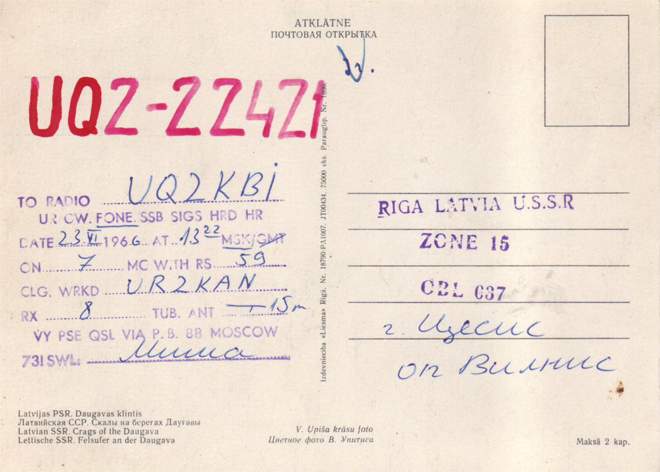 ATKLĀTNE
ПОЧТОВАЯ ОТКРЫТКА
UQ2-22421
TO RADIO UQ2KBI
UR CW. FONE. SSB SIGS HRD HR
DATE 23 VI 1966 AT 13 22 MSK/GMT
ON 7 MC WITH RS 59
CLG. WRKD UR2KAN
RX 8 TUB. ANT 15m
VY PSE QSL VIA P.B. 88 MOSCOW
73! SWL: Миша
Izdevniecība «Liesma» Rīgā. Nr. 18790-PA1007. JT00434. 75000 eks. Paraugtip. Nr.
RIGA LATVIA U.S.S.R
ZONE 15
OBL 037
г. Цесис
оп Вилнис
Latvijas PSR. Daugavas klintis
Латвийская ССР. Скалы на берегах Даугавы
Latvian SSR. Crags of the Daugava
Lettische SSR. Felsufer an der Daugava
V. Upīša krāsu foto
Цветное фото В. Упитиса
Maksā 2 kap.